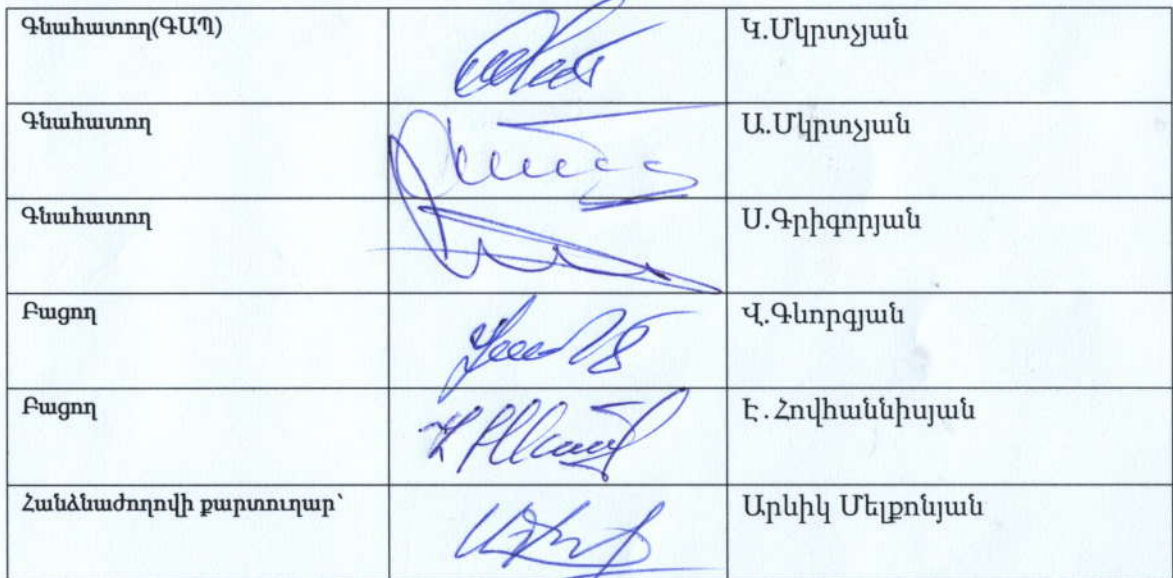 Գնահատող(ԳԱՊ) Կ.Մկրտչյան
Գնահատող Ա.Մկրտչյան
Գնահատող Ս.Գրիգորյան
Բացող Վ.Գևորգյան
Բացող Է.Հովհաննիսյան
Հանձնաժողովի քարտուղար՝ Արևիկ Մելքոնյան